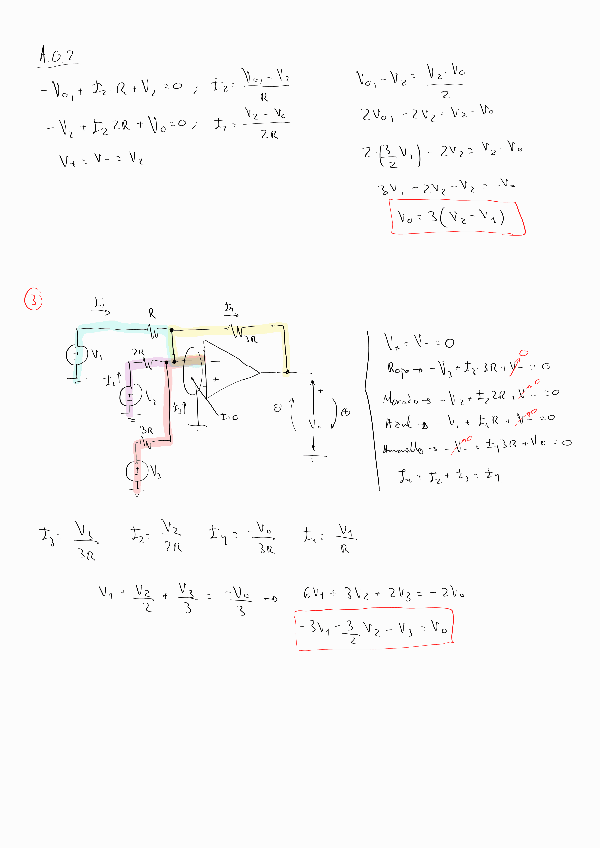 A.O 2
-Vo1 + I2 R + V2 = 0 ; I2 = (Vo1 - V2)/R
-V2 + I2 2R + Vo = 0 ; I2 = (V2 - Vo)/2R
V+ = V- = V2
Vo1 - V2 = (V2 - Vo)/2
2Vo1 - 2V2 = V2 - Vo
2·(3/2 V1) - 2V2 = V2 - Vo
3V1 - 2V2 - V2 = -Vo
Vo = 3(V2 - V1)
3
R
3R
V1
2R
V2
3R
V3
I=0
V+ = V- = 0
Rojo → -V3 + I3 3R + V- = 0
Morado → -V2 + I2 2R + V- = 0
Azul → -V1 + I1 R + V- = 0
Amarillo → -V- + I4 3R + Vo = 0
I1 + I2 + I3 = I4
I3 = V3/3R I2 = V2/2R I4 = -Vo/3R I1 = V1/R
V1 + V2/2 + V3/3 = -Vo/3 → 6V1 + 3V2 + 2V3 = -2Vo
-3V1 - 3/2 V2 - V3 = Vo